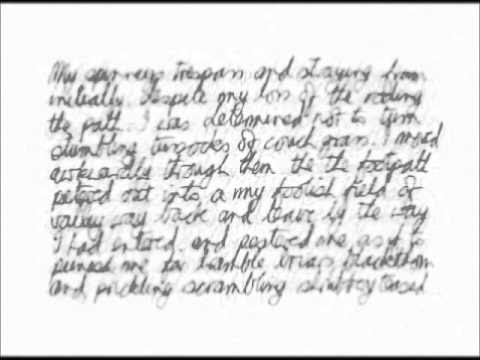 My trespass and straying from
initially despite my loss of the
the path. I was determined not to turn
stumbling tussocks of couch grass. I moved
awkwardly through them the the footpath
petered out into a my foolish field of
way back and leave by the way
I had entered, and pestered me as if to
me for bramble briars blackthorn
and prickling scrambling